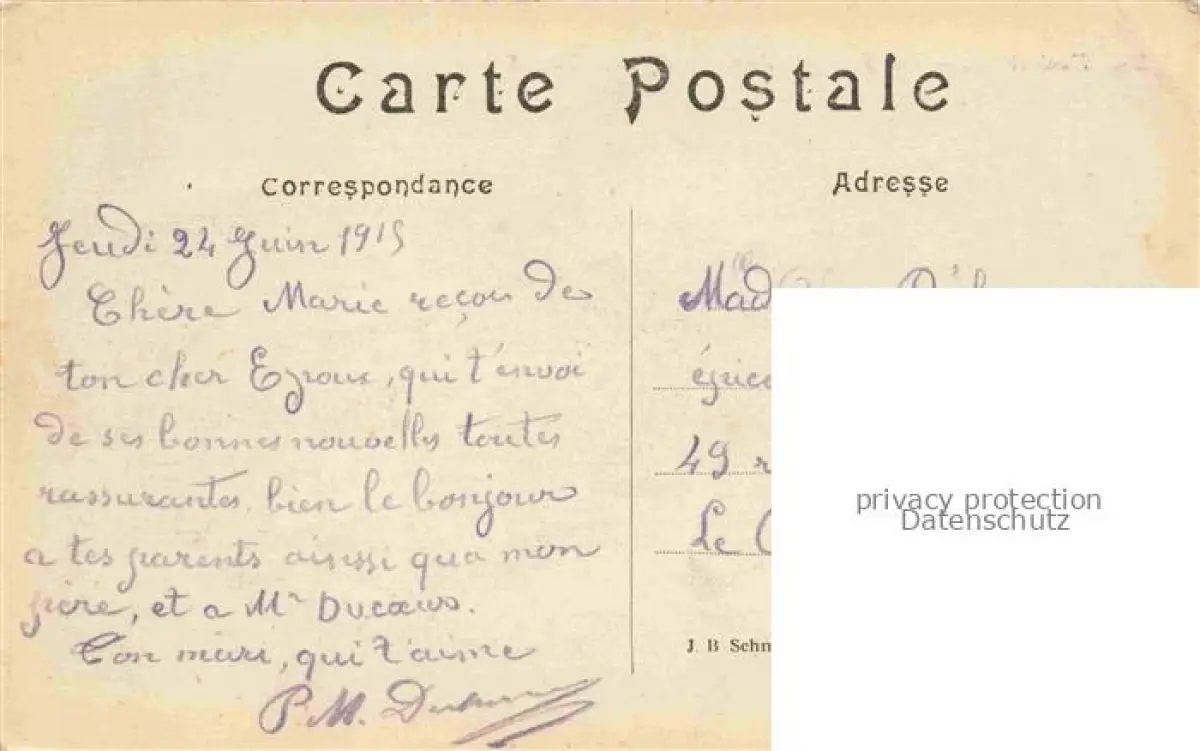 Carte Postale
Correspondance
Jeudi 24 Juin 1915
Chère Marie reçou de
ton cher Eproux, qui t'envoi
de ses bonnes nouvelles toutes
rassurantes. bien le bonjour
a tes parents ainssi qua mon
père, et a Mr Ducœurs.
Ton mari, qui t'aime
P. M.
Adresse
Mad
épice
49 r
Le C
J. B Schn
privacy protection
Datenschutz